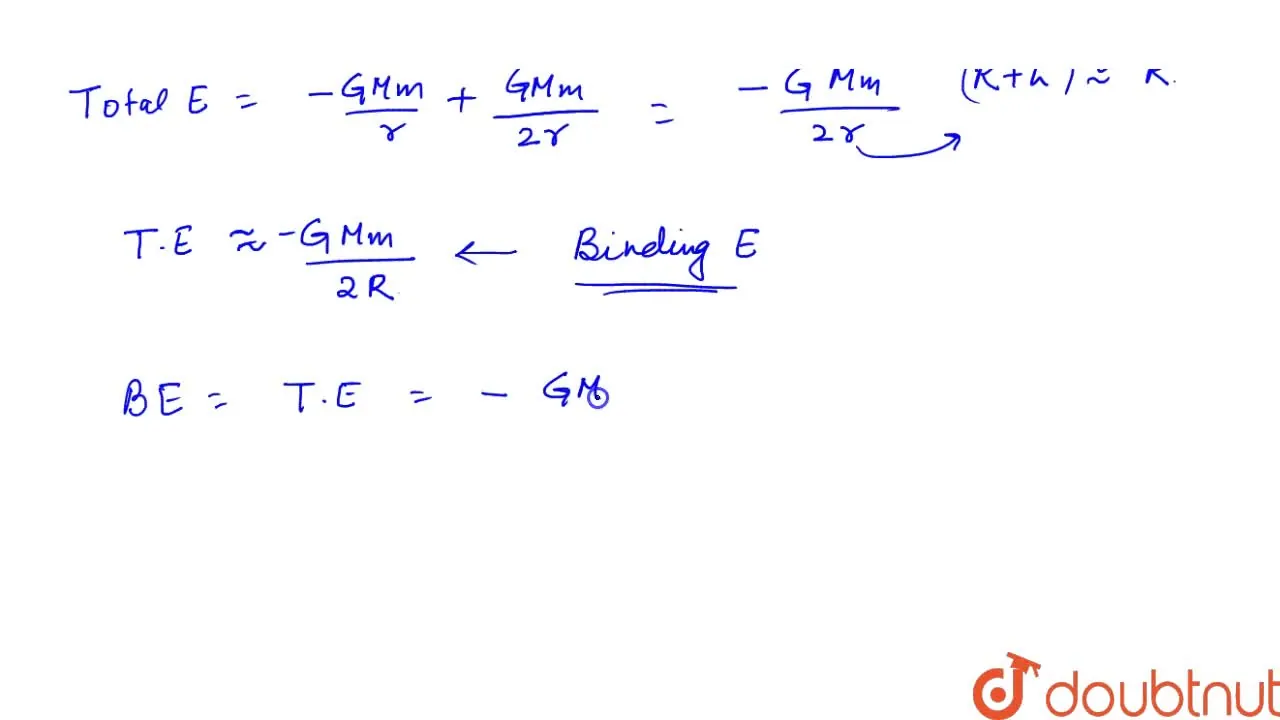 Total E = -GMm/r + GMm/2r = -GMm/2r (R+h) ≈ R
T.E ≈ -GMm/2R ← Binding E
BE = T.E = - GM
doubtnut